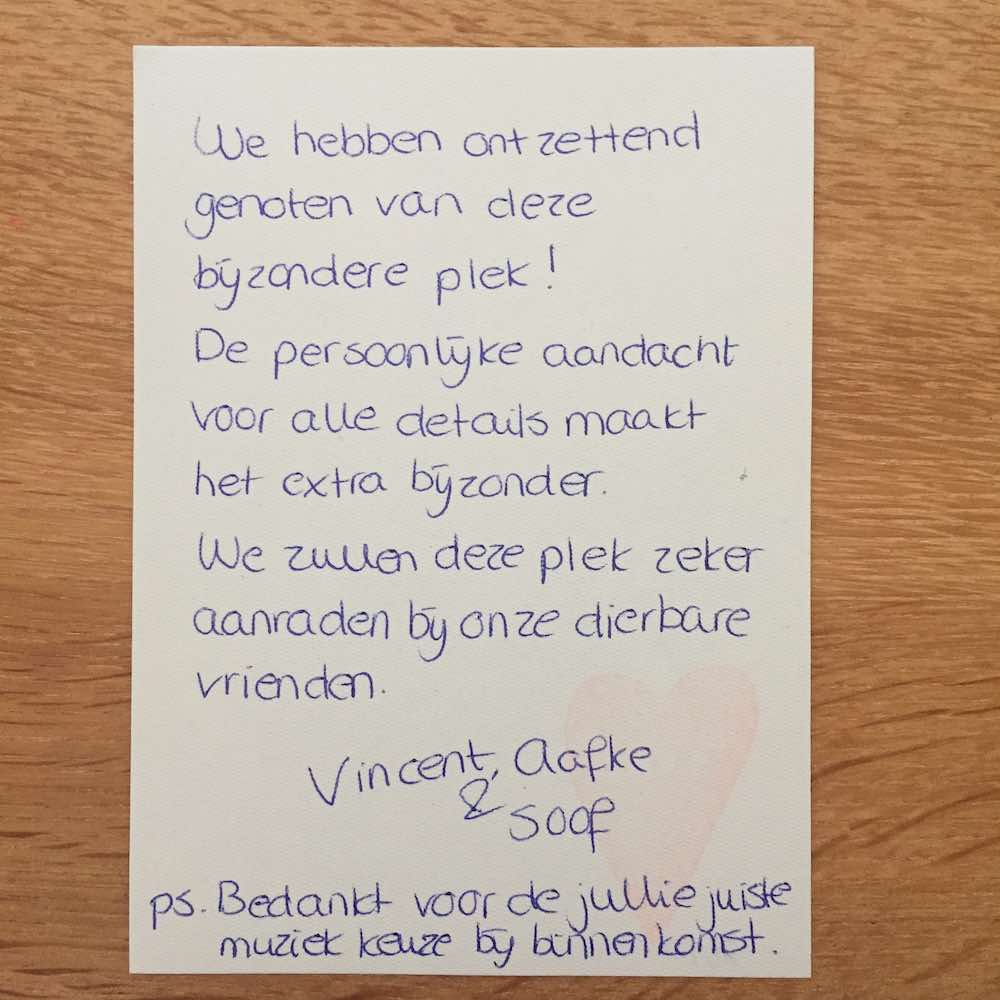 We hebben ontzettend
genoten van deze
bijzondere plek!
De persoonlijke aandacht
voor alle details maakt
het extra bijzonder.
We zullen deze plek zeker
aanraden bij onze dierbare
vrienden.
Vincent, Aafke
& Soof
ps. Bedankt voor de jullie juiste
muziek keuze bij binnenkomst.